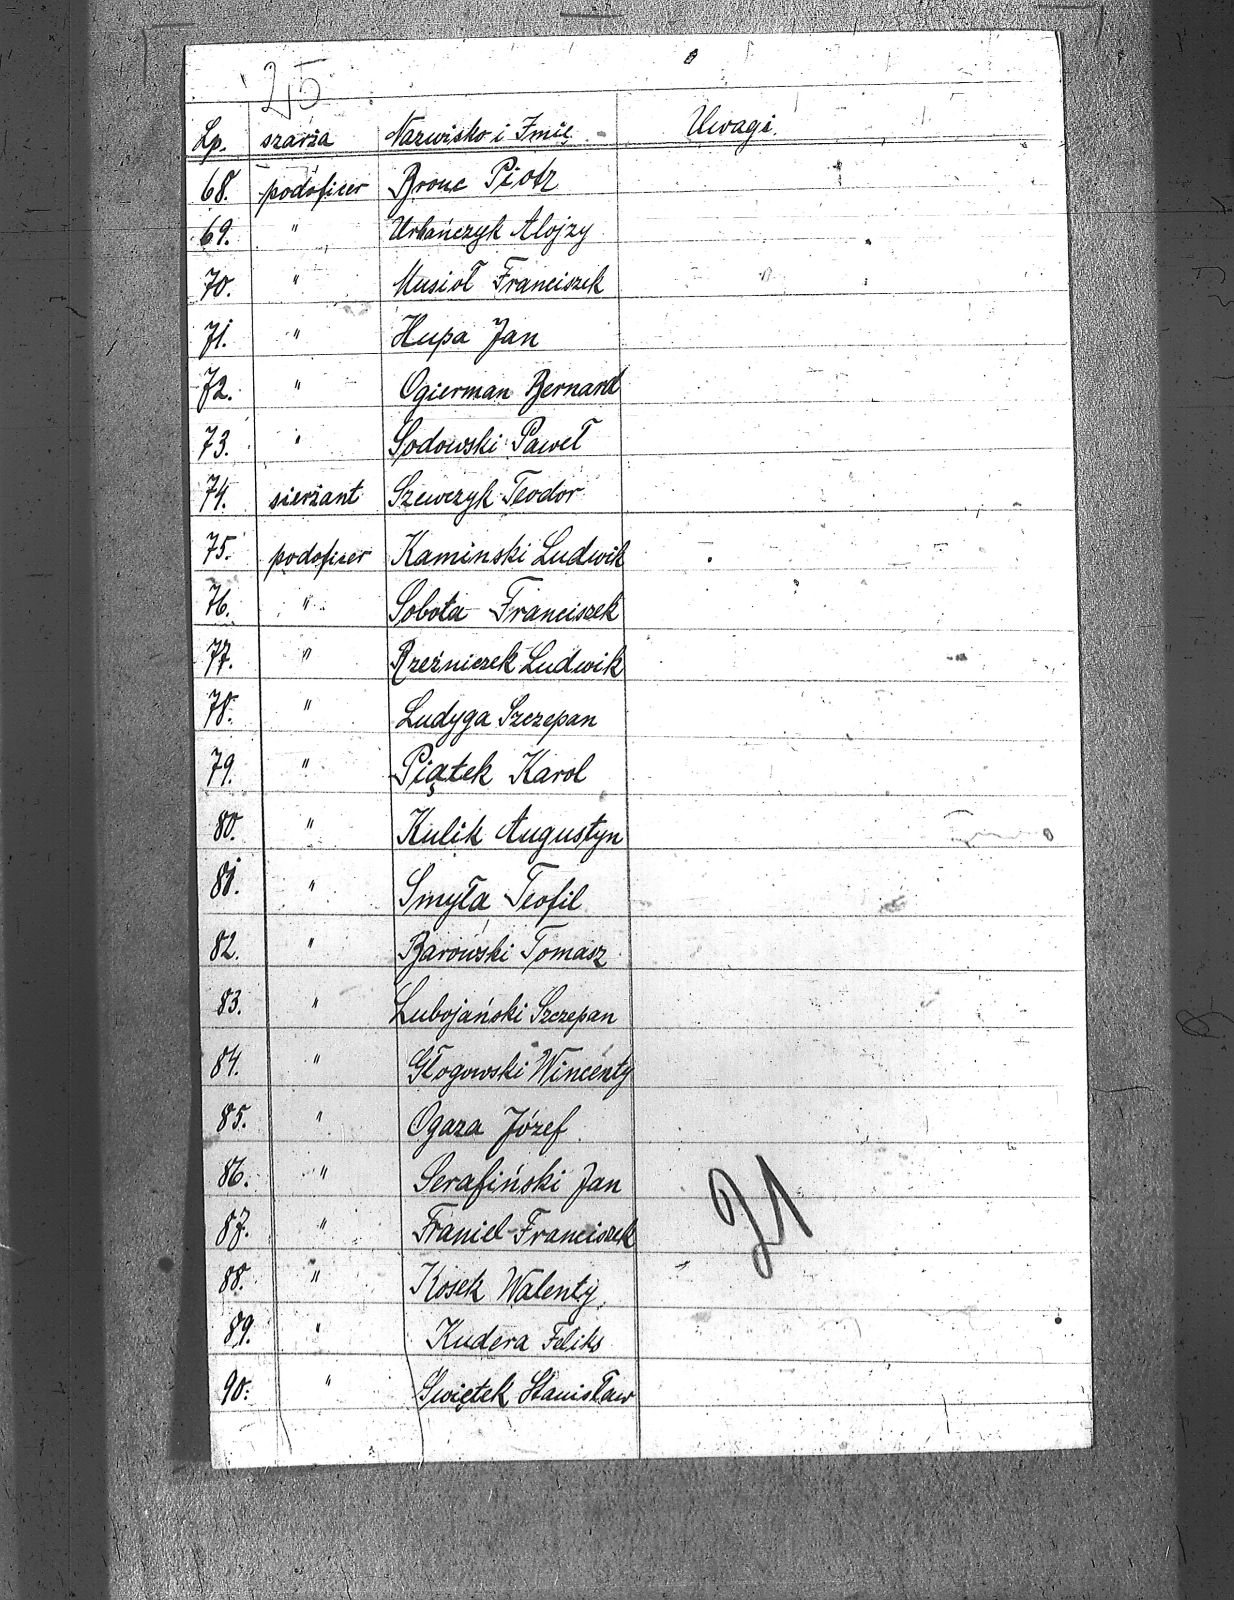 25
Lp. szarża Nazwisko i Imię Uwagi.
68. podoficer Bronc Piotr
69. " Urbańczyk Alojzy
70. " Musioł Franciszek
71. " Hupa Jan
72. " Ogierman Bernard
73. " Sodowski Paweł
74. sierżant Szewczyk Teodor
75. podoficer Kaminski Ludwik
76. " Sobota Franciszek
77. " Rzeźniczek Ludwik
78. " Ludyga Szczepan
79. " Piątek Karol
80. " Kulik Augustyn
81. " Smyła Teofil
82. " Barowski Tomasz
83. " Lubojański Szczepan
84. " Głogowski Wincenty
85. " Ogaza Józef
86. " Serafiński Jan
87. " Franiel Franciszek
21
88. " Kosek Walenty
89. " Kudera Feliks
90. " Świętek Stanisław